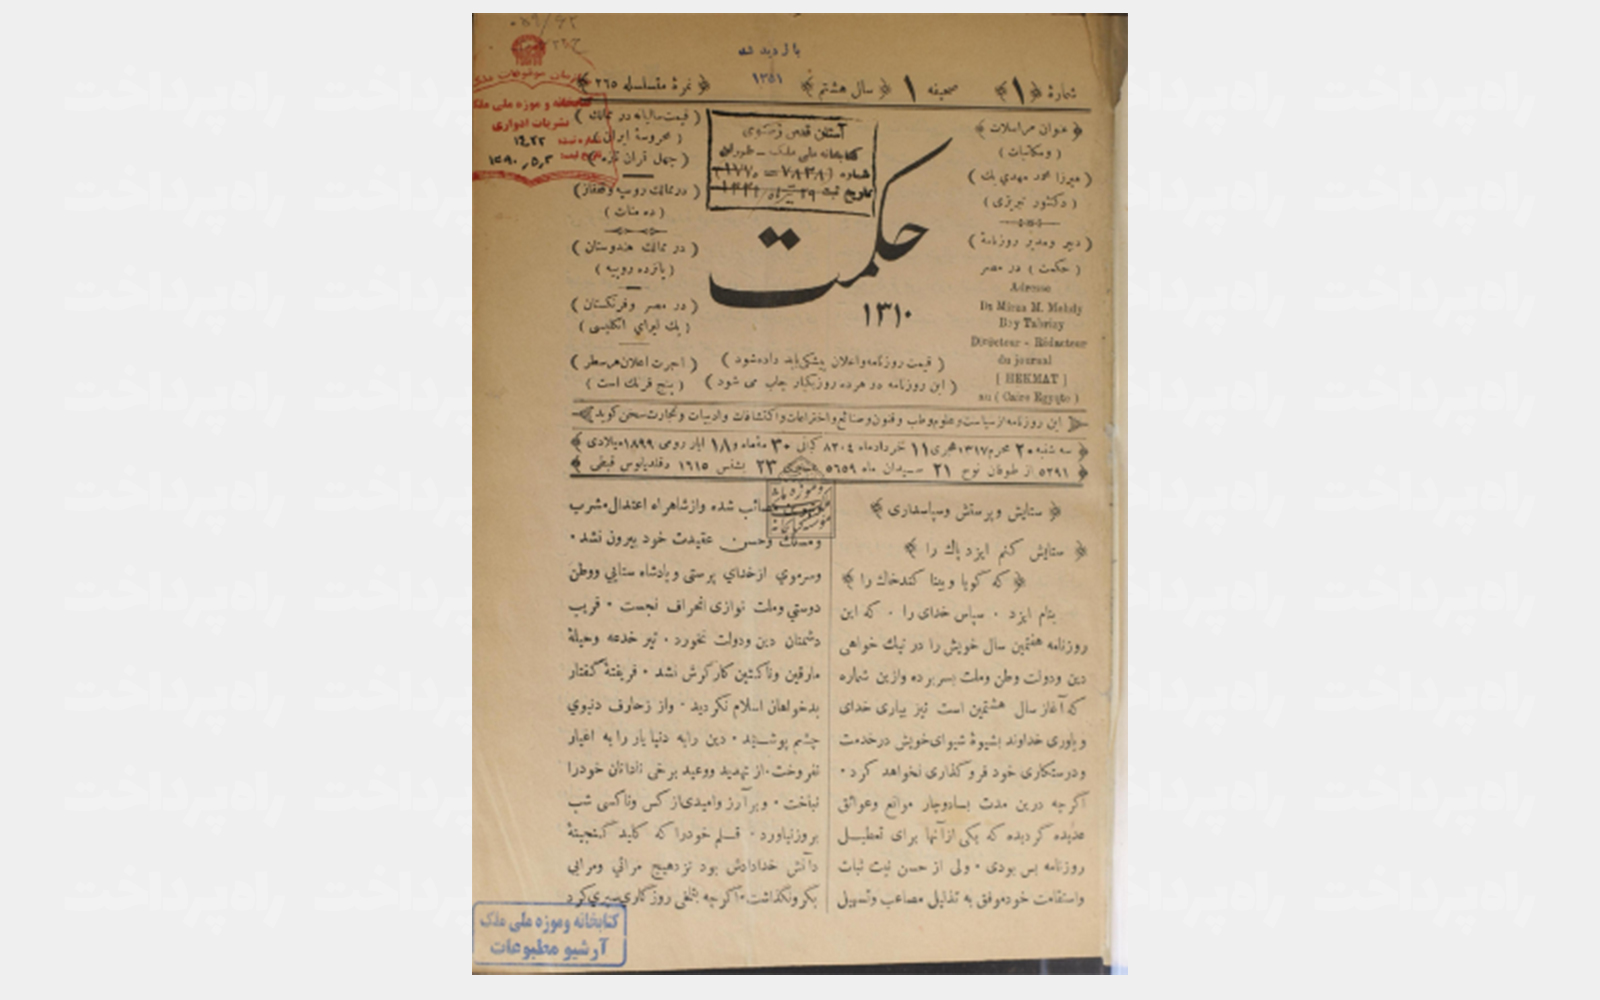 بازدید شد
۱۳۵۱
شمارهٔ ﴿۱﴾ صحیفه ۱ ﴿ سال هشتم ﴾ ﴿ نمرهٔ مسلسله ۲٦٥ ﴾
سازمان موقوفات ملک
کتابخانه و موزه ملی ملک
نشریات ادواری
آستان قدس رضوی
کتابخانه ملی ملک ـ طهران
شماره
تاریخ ثبت
حکمت
۱۳۱۰
﴿ عنوان مراسلات ﴾
( ومکاتبات )
( میرزا محمد مهدي بك )
( دکتور تبریزی )
( دبیر ومدیر روزنامهٔ )
( حکمت ) در مصر
Adresse
Dr Mirza M. Mehdy
Bey Tabrizy
Directeur - Rédacteur
du journal
[ HEKMAT ]
au ( Caire Egypte )
( قیمت سالیانه در ممالك )
( محروسهٔ ایران )
( چهل قران )
( در ممالك روسیه وقفقاز )
( ده منات )
( در ممالك هندوستان )
( پانزده روپیه )
( در مصر وفرنکستان )
( یك لیرای انکلیسی )
( اجرت اعلان هر سطر )
( پنج فرنك است )
( قیمت روزنامه واعلان پیشکی باید داده شود )
( این روزنامه در هر ده روز یکبار چاپ می شود )
این روزنامه از سیاست وعلوم وطب وفنون وصنائع واختراعات واکتشافات وادبیات وتجارت سخن کوید
﴿ سه شنبه ۲۰ محرم ۱۳۱۷ هجری ۱۱ خردادماه ۸۲۰٤ کیانی ۳۰ مهٔ ماه و ۱۸ ایار رومی ۱۸۹۹ میلادی ﴾
﴿ ٥۲۹۱ از طوفان نوح ۲۱ سیدان ماه ٥٦٥۹ ۲۳ بشنس ۱٦۱٥ دقلدیانوس قبطی ﴾
﴿ ستایش وپرستش وسپاسداری ﴾
﴿ ستایش کنم ایزد پاك را ﴾
﴿ که کویا وبینا کند خاك را ﴾
بنام ایزد ۰ سپاس خدای را ۰ که این
روزنامه هفتمین سال خویش را در نیك خواهی
دین ودولت وطن وملت بسر برده وازین شماره
که آغاز سال هشتمین است نیز بیاری خدای
ویاوری خداوند بشیوهٔ شیوای خویش در خدمت
ودرستکاری خود فروکذاری نخواهد کرد ۰
اکرچه درین مدت بسا دوچار موانع وعوائق
عدیده کردیده که یکی از آنها برای تعطیل
روزنامه بس بودی ۰ ولی از حسن نیت ثبات
واستقامت خود موفق به تذلیل مصاعب وتسهیل
مصائب شده واز شاهراه اعتدال مشرب
ومسلك وحسن عقیدت خود بیرون نشد ۰
وسرموي از خداي پرستی وپادشاه ستایي ووطن
دوستي وملت نوازی انحراف نجست ۰ فریب
دشمنان دین ودولت نخورد ۰ تیر خدعه وحیلهٔ
مارقین وناکثین کارکرش نشد ۰ فریفتهٔ کفتار
بدخواهان اسلام نکردید ۰ واز زخارف دنیوي
چشم پوشید ۰ دین را به دنیا یار را به اغیار
نفروخت ۰ از تهدید ووعید برخی نادانان خود را
نباخت ۰ وبر آرز وامیدی از کس وناکسی شب
بروز نیاورد ۰ قلم خود را که کلید کنجینهٔ
دانش خدادادش بود نزد هیچ مرائي ومرابی
بکرو نکذاشت ۰ اکرچه بتلخی روزکاری سپري کرد
کتابخانه وموزه ملی ملک
آرشیو مطبوعات